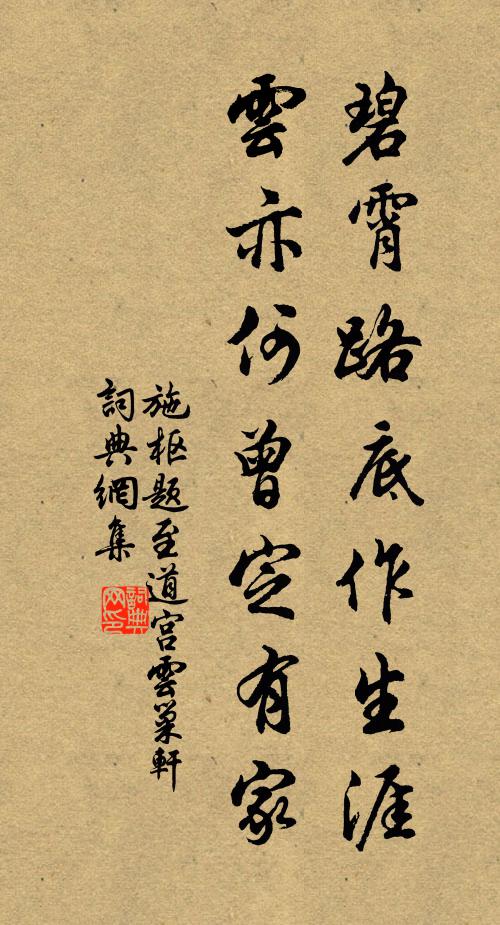 碧霄路底作生涯
雲亦何曾定有家
施枢題至道宮雲巢軒
詞典網集
詞典網印